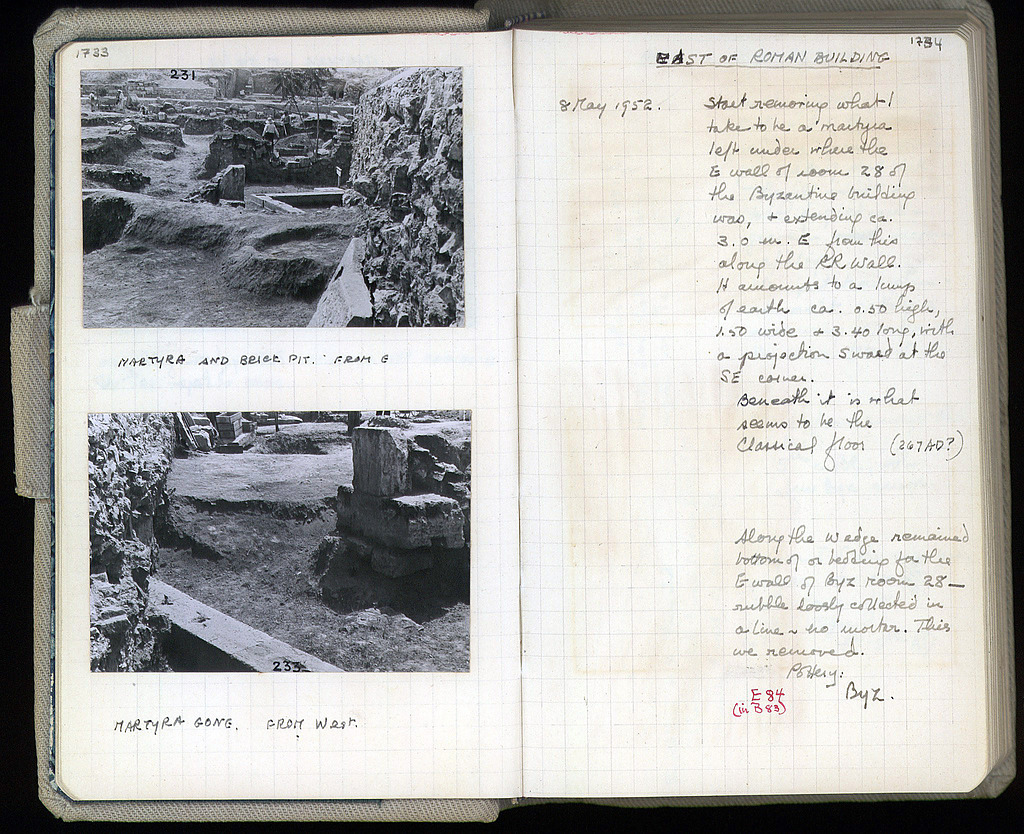 1733
231
MARTYRA AND BRICK PIT. FROM E
233
MARTYRA GONE. FROM West.
1734
EAST OF ROMAN BUILDING
8 May 1952.
Start removing what I
take to be a martyra
left under where the
E wall of room 28 of
the Byzantine building
was, + extending ca.
3.0 m. E from this
along the RR Wall.
It amounts to a lump
of earth ca. 0.50 high,
1.50 wide + 3.40 long, with
a projection S ward at the
SE corner.
Beneath it is what
seems to be the
Classical floor (267 AD?)
Along the W edge remained
bottom of or bedding for the
E wall of Byz room 28 —
rubble loosly collected in
a line ~ no mortar. This
we removed.
Pottery:
E 84
(in B 83)
Byz.